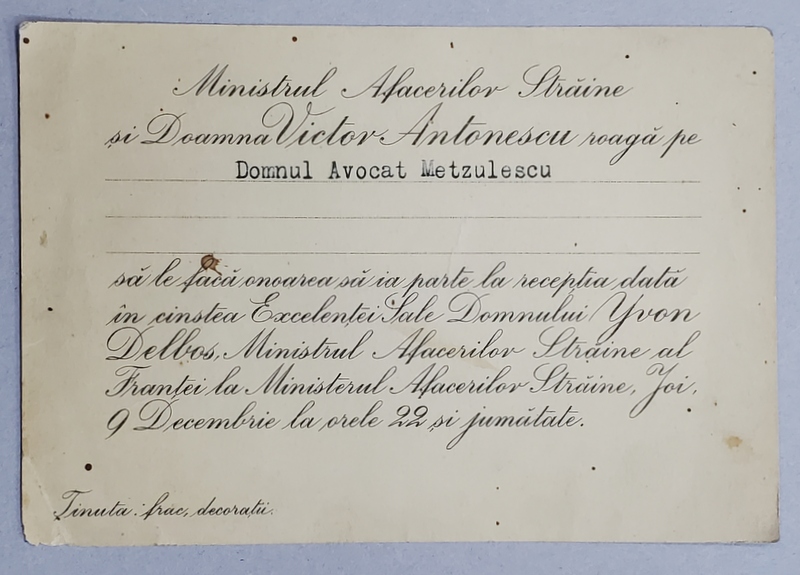 Ministrul Afacerilor Străine
și Doamna Victor Antonescu roagă pe
Domnul Avocat Metzulescu
să le facă onoarea să ia parte la recepția dată
în cinstea Excelenței Sale Domnului Yvon
Delbos, Ministrul Afacerilor Străine al
Franței la Ministerul Afacerilor Străine, Joi,
9 Decembrie la orele 22 și jumătate.
Ținuta: frac, decorații.